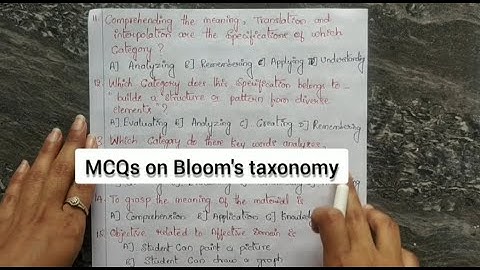 11. Comprehending the meaning, Translation and
interpolation are the specifications of which
Category?
A] Analyzing B] Remembering C] Applying D] Understanding
12. Which Category does this specification belongs to -
"builds a structure or pattern from diverse
elements"?
A] Evaluating B] Analyzing C] Creating D] Remembering
13 Which Category do these key words analyze,
MCQs on Bloom's taxonomy
14. To grasp the meaning of the material is
A] Comprehension B] Application C]
15. Objective related to Affective Domain is
A] Student Can paint a picture
B] Student Can draw a graph